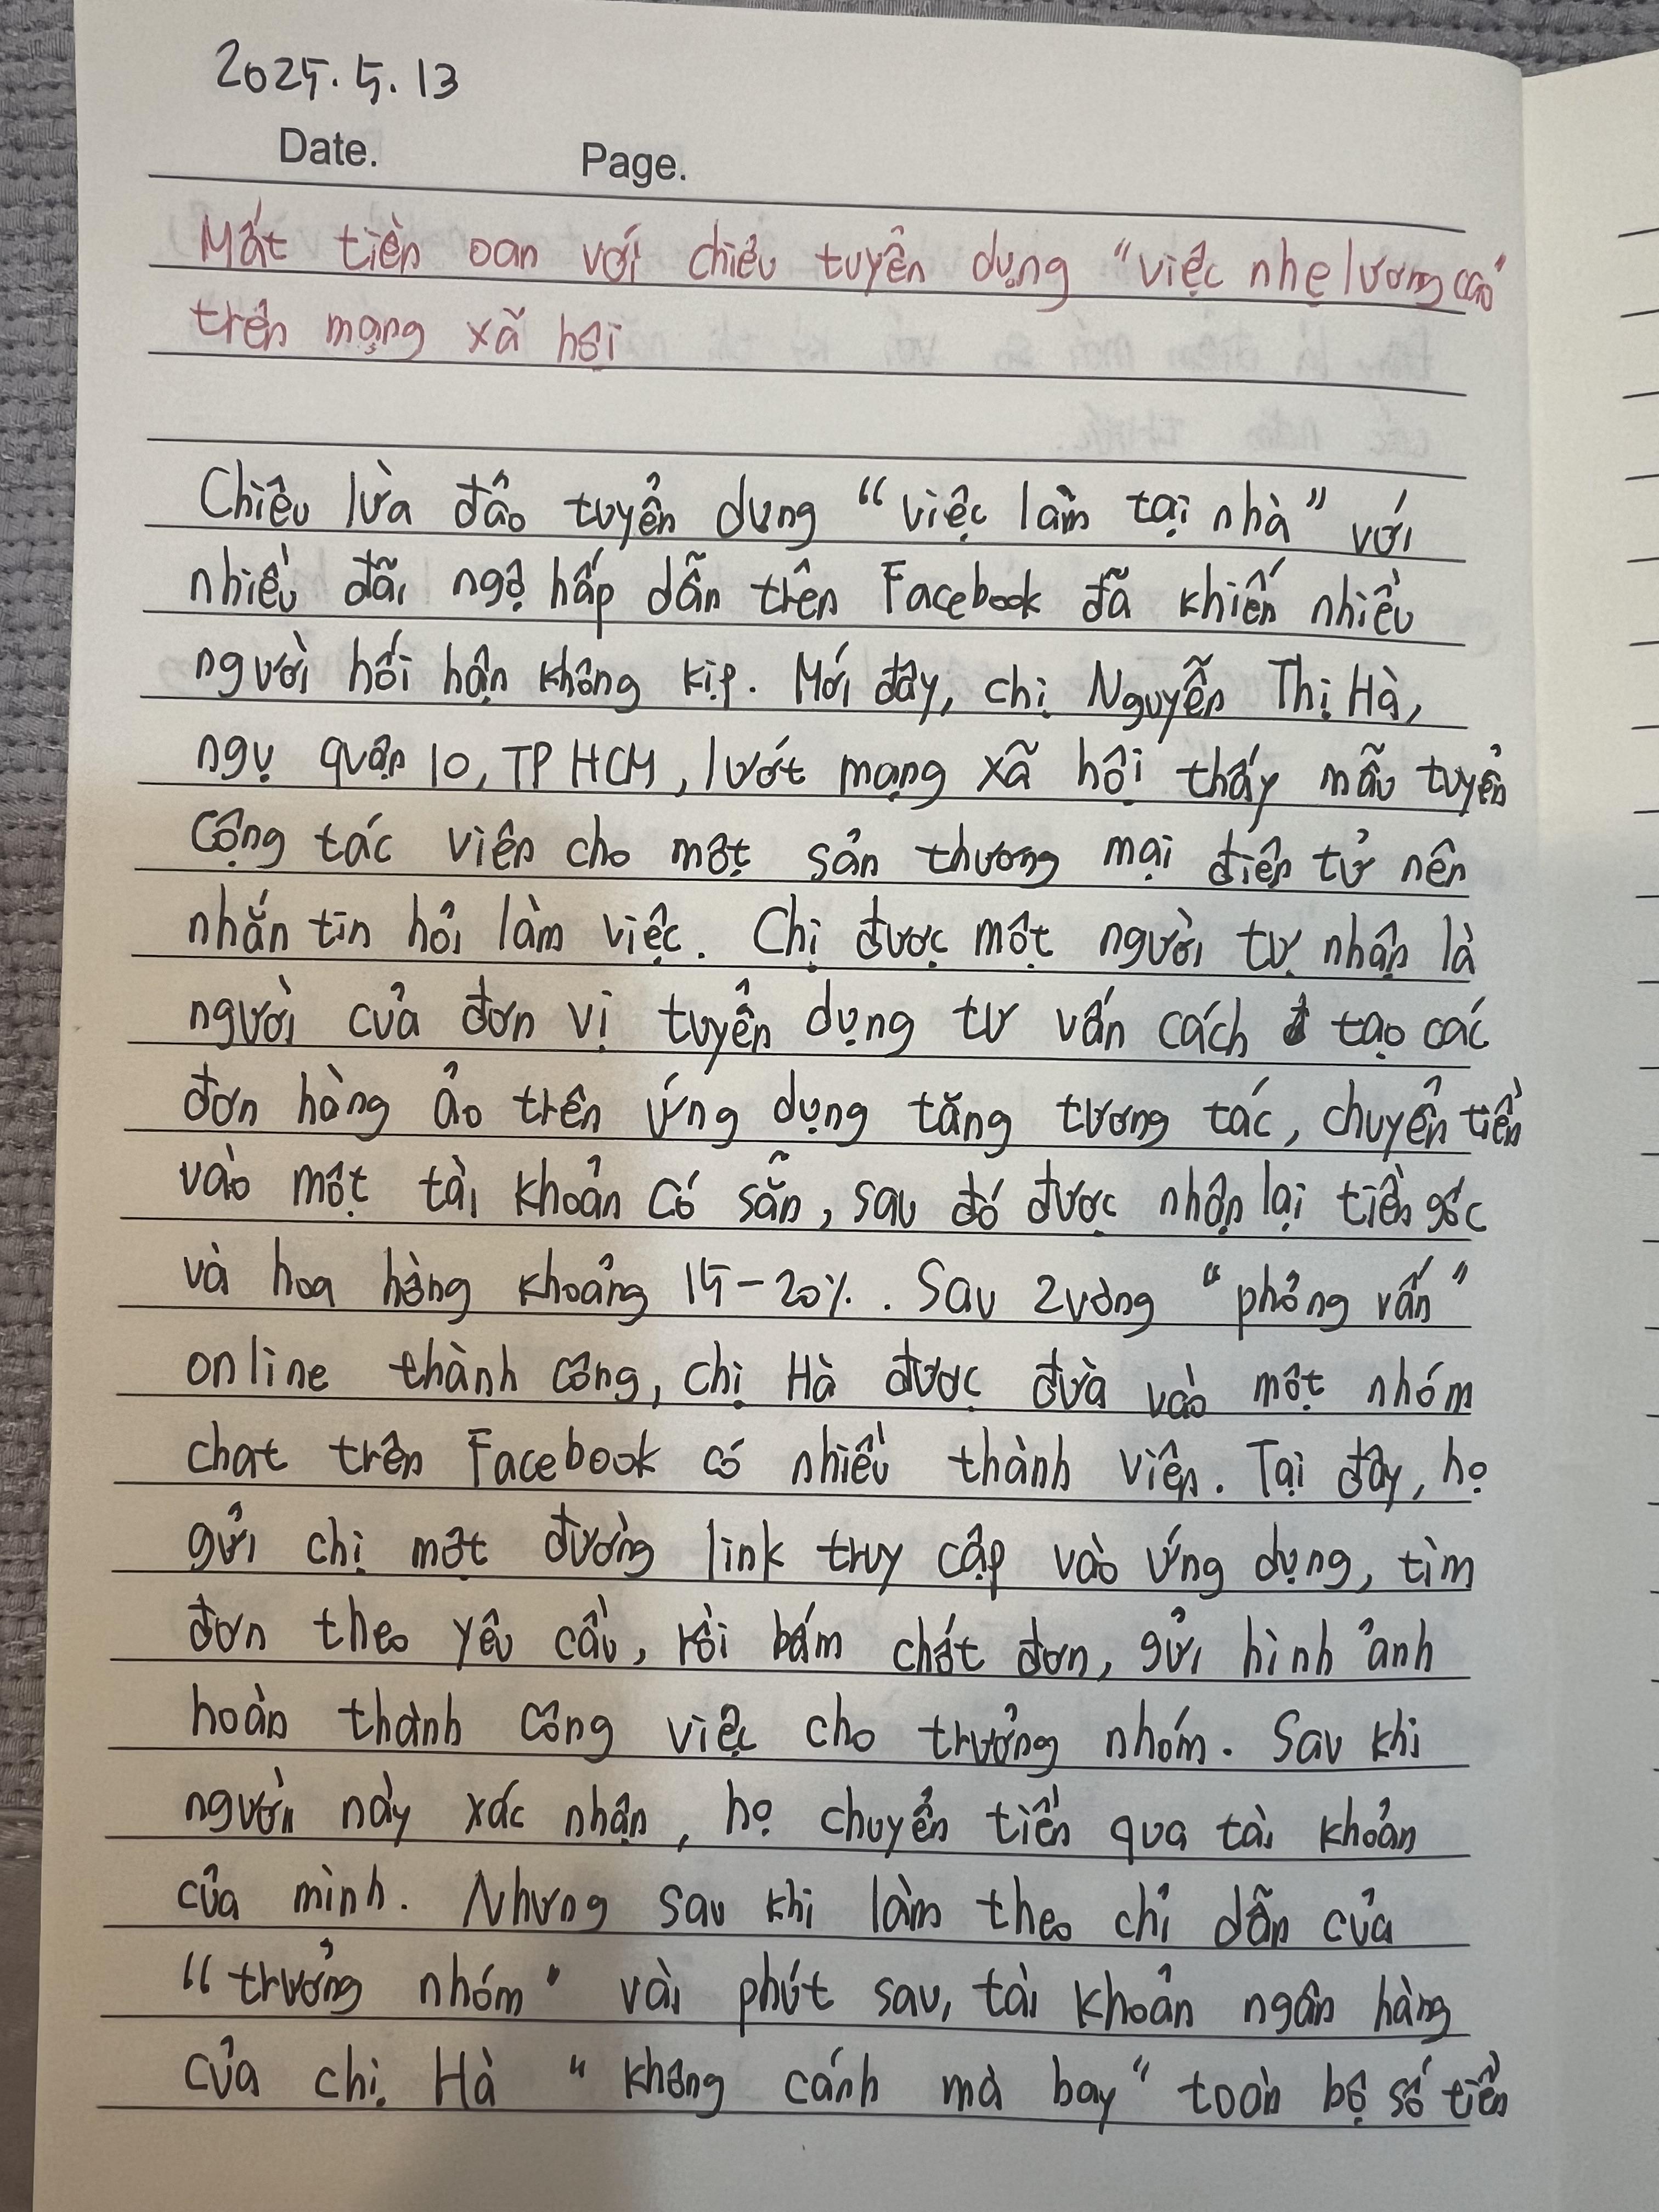 2025. 5. 13
Date. Page.
Mất tiền oan với chiêu tuyển dụng "việc nhẹ lương cao"
trên mạng xã hội
Chiêu lừa đảo tuyển dụng "việc làm tại nhà" với
nhiều đãi ngộ hấp dẫn trên Facebook đã khiến nhiều
người hối hận không kịp. Mới đây, chị Nguyễn Thị Hà,
ngụ quận 10, TP HCM, lướt mạng xã hội thấy mẫu tuyển
cộng tác viên cho một sàn thương mại điện tử nên
nhắn tin hỏi làm việc. Chị được một người tự nhận là
người của đơn vị tuyển dụng tư vấn cách tạo các
đơn hàng ảo trên ứng dụng tăng tương tác, chuyển tiền
vào một tài khoản có sẵn, sau đó được nhận lại tiền gốc
và hoa hồng khoảng 15-20%. Sau 2 vòng "phỏng vấn"
online thành công, chị Hà được đưa vào một nhóm
chat trên Facebook có nhiều thành viên. Tại đây, họ
gửi chị một đường link truy cập vào ứng dụng, tìm
đơn theo yêu cầu, rồi bấm chốt đơn, gửi hình ảnh
hoàn thành công việc cho trưởng nhóm. Sau khi
người này xác nhận, họ chuyển tiền qua tài khoản
của mình. Nhưng sau khi làm theo chỉ dẫn của
"trưởng nhóm" vài phút sau, tài khoản ngân hàng
của chị Hà "không cánh mà bay" toàn bộ số tiền